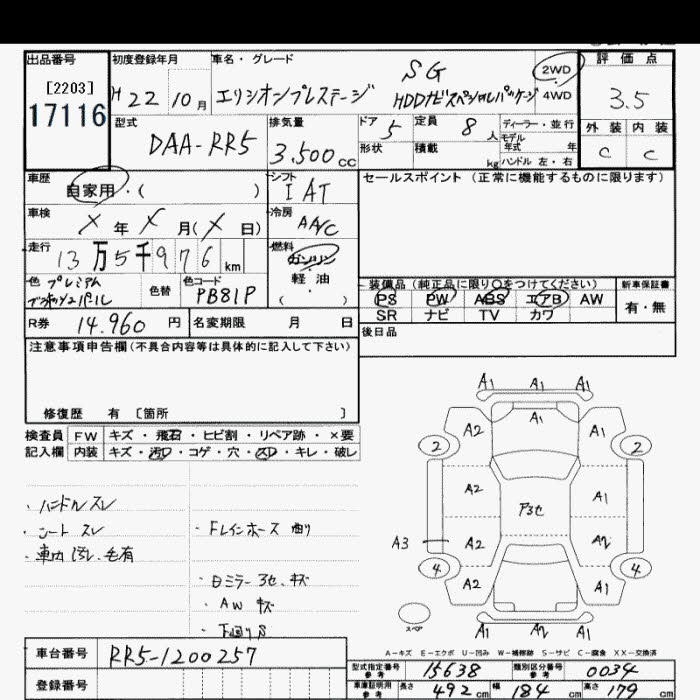 出品番号 初度登録年月 車名・グレード 評価点
[2203]
17116
H22 10月 エリシオンプレステージ SG HDDナビスペシャルパッケージ 2WD 4WD 3.5
型式 排気量 ドア 定員 ディーラー・並行
DAA-RR5 3.500cc 5 8人 モデル年式 年
形状 積載 kg ハンドル 左・右
外装 内装
C C
車歴 自家用・( ) シフト IAT
セールスポイント (正常に機能するものに限ります)
車検 X年X月(X日) 冷房 A/C
走行 13万5千976km 燃料 ガソリン・軽油・( )
色 プレミアム 色替 色コード PB81P
装備品(純正品に限り〇をつけてください) 新車保証書
PS PW ABS エアB AW 有・無
SR ナビ TV カワ
R券 14.960円 名変期限 月 日
後日品
注意事項申告欄(不具合内容等は具体的に記入して下さい)
修復歴 有 [箇所 ]
検査員 FW キズ・飛石・ヒビ割・リペア跡・×要
記入欄 内装 キズ・汚れ・コゲ・穴・スレ・キレ・破レ
・ハンドルスレ
・シート スレ
・車内 汚レ、毛有
・Fレインホース 曲り
・日ミラー ヲセ、キズ
・AW キズ
・下廻りS
A1 A1 A1
A2 A1 A1
2 2
A2 A1
ヲセ
A3 A2 A2
4 4
A2 A1
A1 A2 A1
スペア
A-キズ E-エクボ U-凹み W-補修跡 S-サビ C-腐食 XX-交換済
車台番号 RR5-1200257
登録番号
型式指定番号 参考 15638 類別区分番号 参考 0034
車庫証明用 参考 長さ 492cm 幅 184cm 高さ 179cm